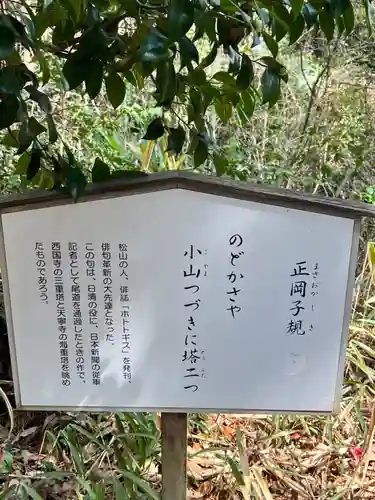 正岡子規
まさおかしき
のどかさや
小山つづきに塔二つ
こやま
とう
ふた
松山の人、俳誌「ホトトギス」を発刊、
俳句革新の大先達となった。
この句は、日清の役に、日本新聞の従軍
記者として尾道を通過したときの作で、
西国寺の三重塔と天寧寺の海雲塔を眺め
たものであろう。